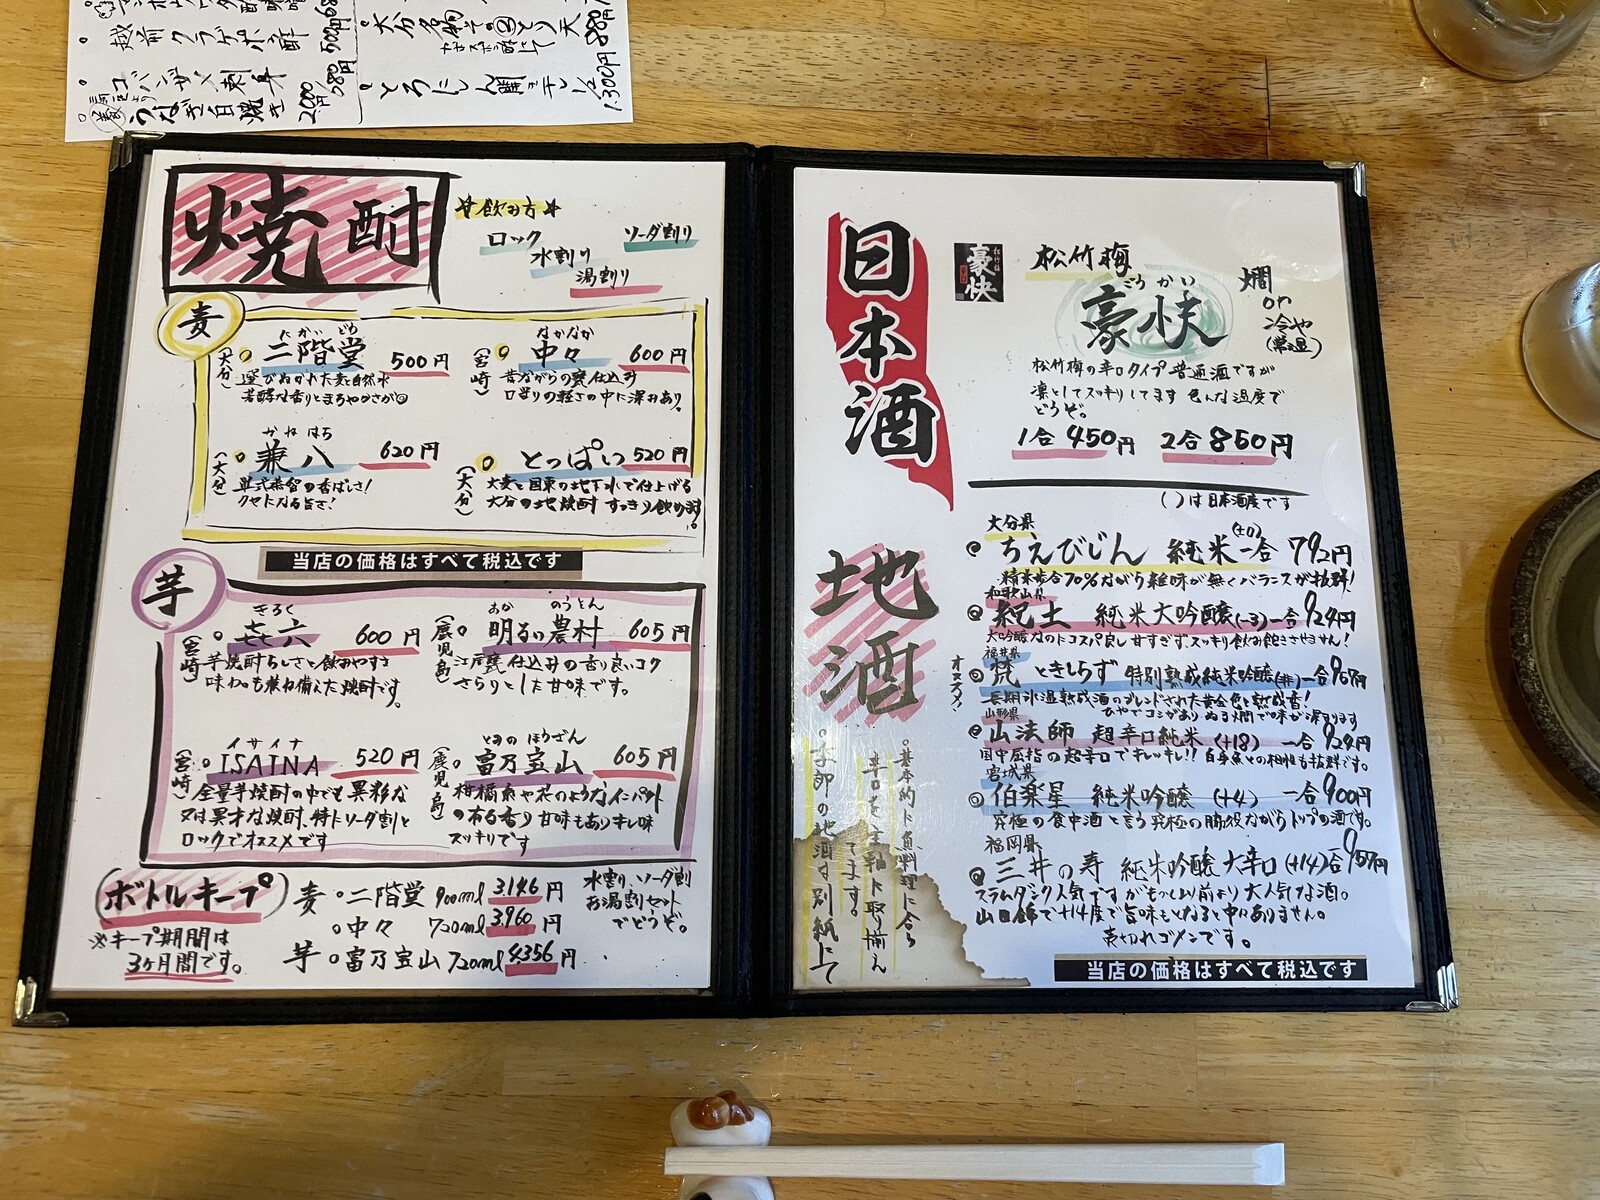 越前クラゲポン酢 500円
コバンザメ刺身
うなぎ白焼き 2,000円
とろにしん開き干し 1,300円
焼酎
飲み方
ロック
水割り
湯割り
ソーダ割り
麦
(大分)
にかいどう
二階堂 500円
選びぬかれた麦と自然水
芳醇な香りとまろやかさが◎
(宮崎)
なかなか
中々 600円
昔ながらの甕仕込み
口当りの軽さの中に深みあり。
(大分)
かねはち
兼八 620円
単式蒸留の香ばしさ!
クセになる旨さ!
(大分)
とっぱい 520円
大麦と国東の地下水で仕上げる
大分の地焼酎 すっきり飲め〼。
当店の価格はすべて税込です
芋
(宮崎)
きろく
㐂六 600円
芋焼酎らしさと飲みやすさ
味わいも兼ね備えた焼酎です。
(鹿児島)
あか のうそん
明るい農村 605円
江戸甕仕込みの香り良いコク
さらりとした甘味です。
(宮崎)
イサイナ
ISAINA 520円
全量芋焼酎の中でも異彩な
又は異才な焼酎、特にソーダ割と
ロックでオススメです
(鹿児島)
とみのほうざん
富乃宝山 605円
柑橘系や花のようなインパクト
の有る香り 甘味もありキレ味
スッキリです
ボトルキープ
※キープ期間は
3ヶ月間です。
麦 。二階堂 900ml 3,146円
。中々 720ml 3,960円
芋 。富乃宝山 720ml 4,356円
水割、ソーダ割
お湯割セット
でどうぞ。
日本酒
豪快
松竹梅
ごうかい
豪快
燗
or
冷や
(常温)
松竹梅の辛口タイプ 普通酒ですが
凛としてスッキリしてます 色んな温度で
どうぞ。
1合 450円 2合 850円
( )は日本酒度です
地酒
。基本的に魚料理に合う
辛口を主軸に取り揃え
てます。
。季節の地酒は別紙にて
大分県
ちえびじん 純米 (±0) 一合 792円
精米歩合70%ながら雑味が無くバランスが抜群!
和歌山県
紀土 純米大吟醸 (−3) 一合 924円
大吟醸なのにコスパ良し 甘すぎず、スッキリ飲み飽きさせません!
福井県
オススメ!
梵 ときしらず 特別熟成純米吟醸 (非) 一合 967円
長期氷温熟成酒のブレンドされた黄金色と熟成香!
ひやでコシがあり ぬる燗で味が深まります
山形県
山法師 超辛口純米 (+18) 一合 924円
国中屈指の超辛口でキレッキレ!! 白身魚との相性も抜群です。
宮城県
伯楽星 純米吟醸 (+4) 一合 900円
究極の食中酒と言う究極の脇役ながらトップの酒です。
福岡県
三井の寿 純米吟醸 大辛口 (+14) 一合 957円
スラムダンク人気ですがもっと以前より大人気な酒。
山田錦で+14度で旨味もとなると中々ありません。
売切れゴメンです。
当店の価格はすべて税込です